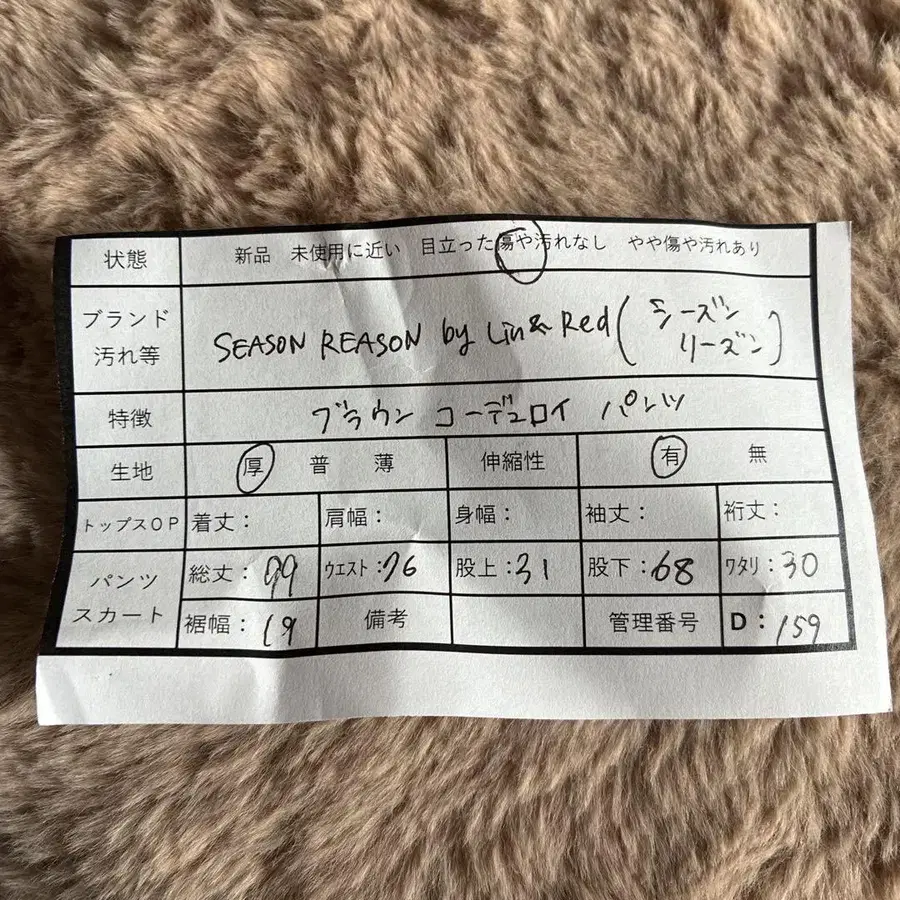 状態 新品 未使用に近い 目立った傷や汚れなし やや傷や汚れあり
ブランド 汚れ等 SEASON REASON by Lin& Red (シーズン リーズン)
特徴 ブラウン コーデュロイ パンツ
生地 厚 普 薄 伸縮性 有 無
トップスOP 着丈: 肩幅: 身幅: 袖丈: 裄丈:
パンツ スカート 総丈:99 ウエスト:76 股上:31 股下:68 ワタリ:30
裾幅:19 備考 管理番号 D:159